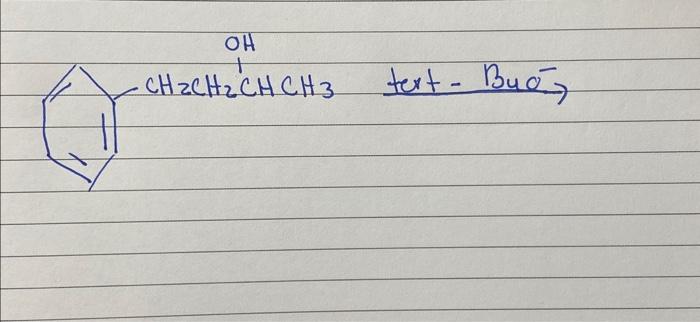 OH
CH2CH2CHCH3 tert - BuO⁻